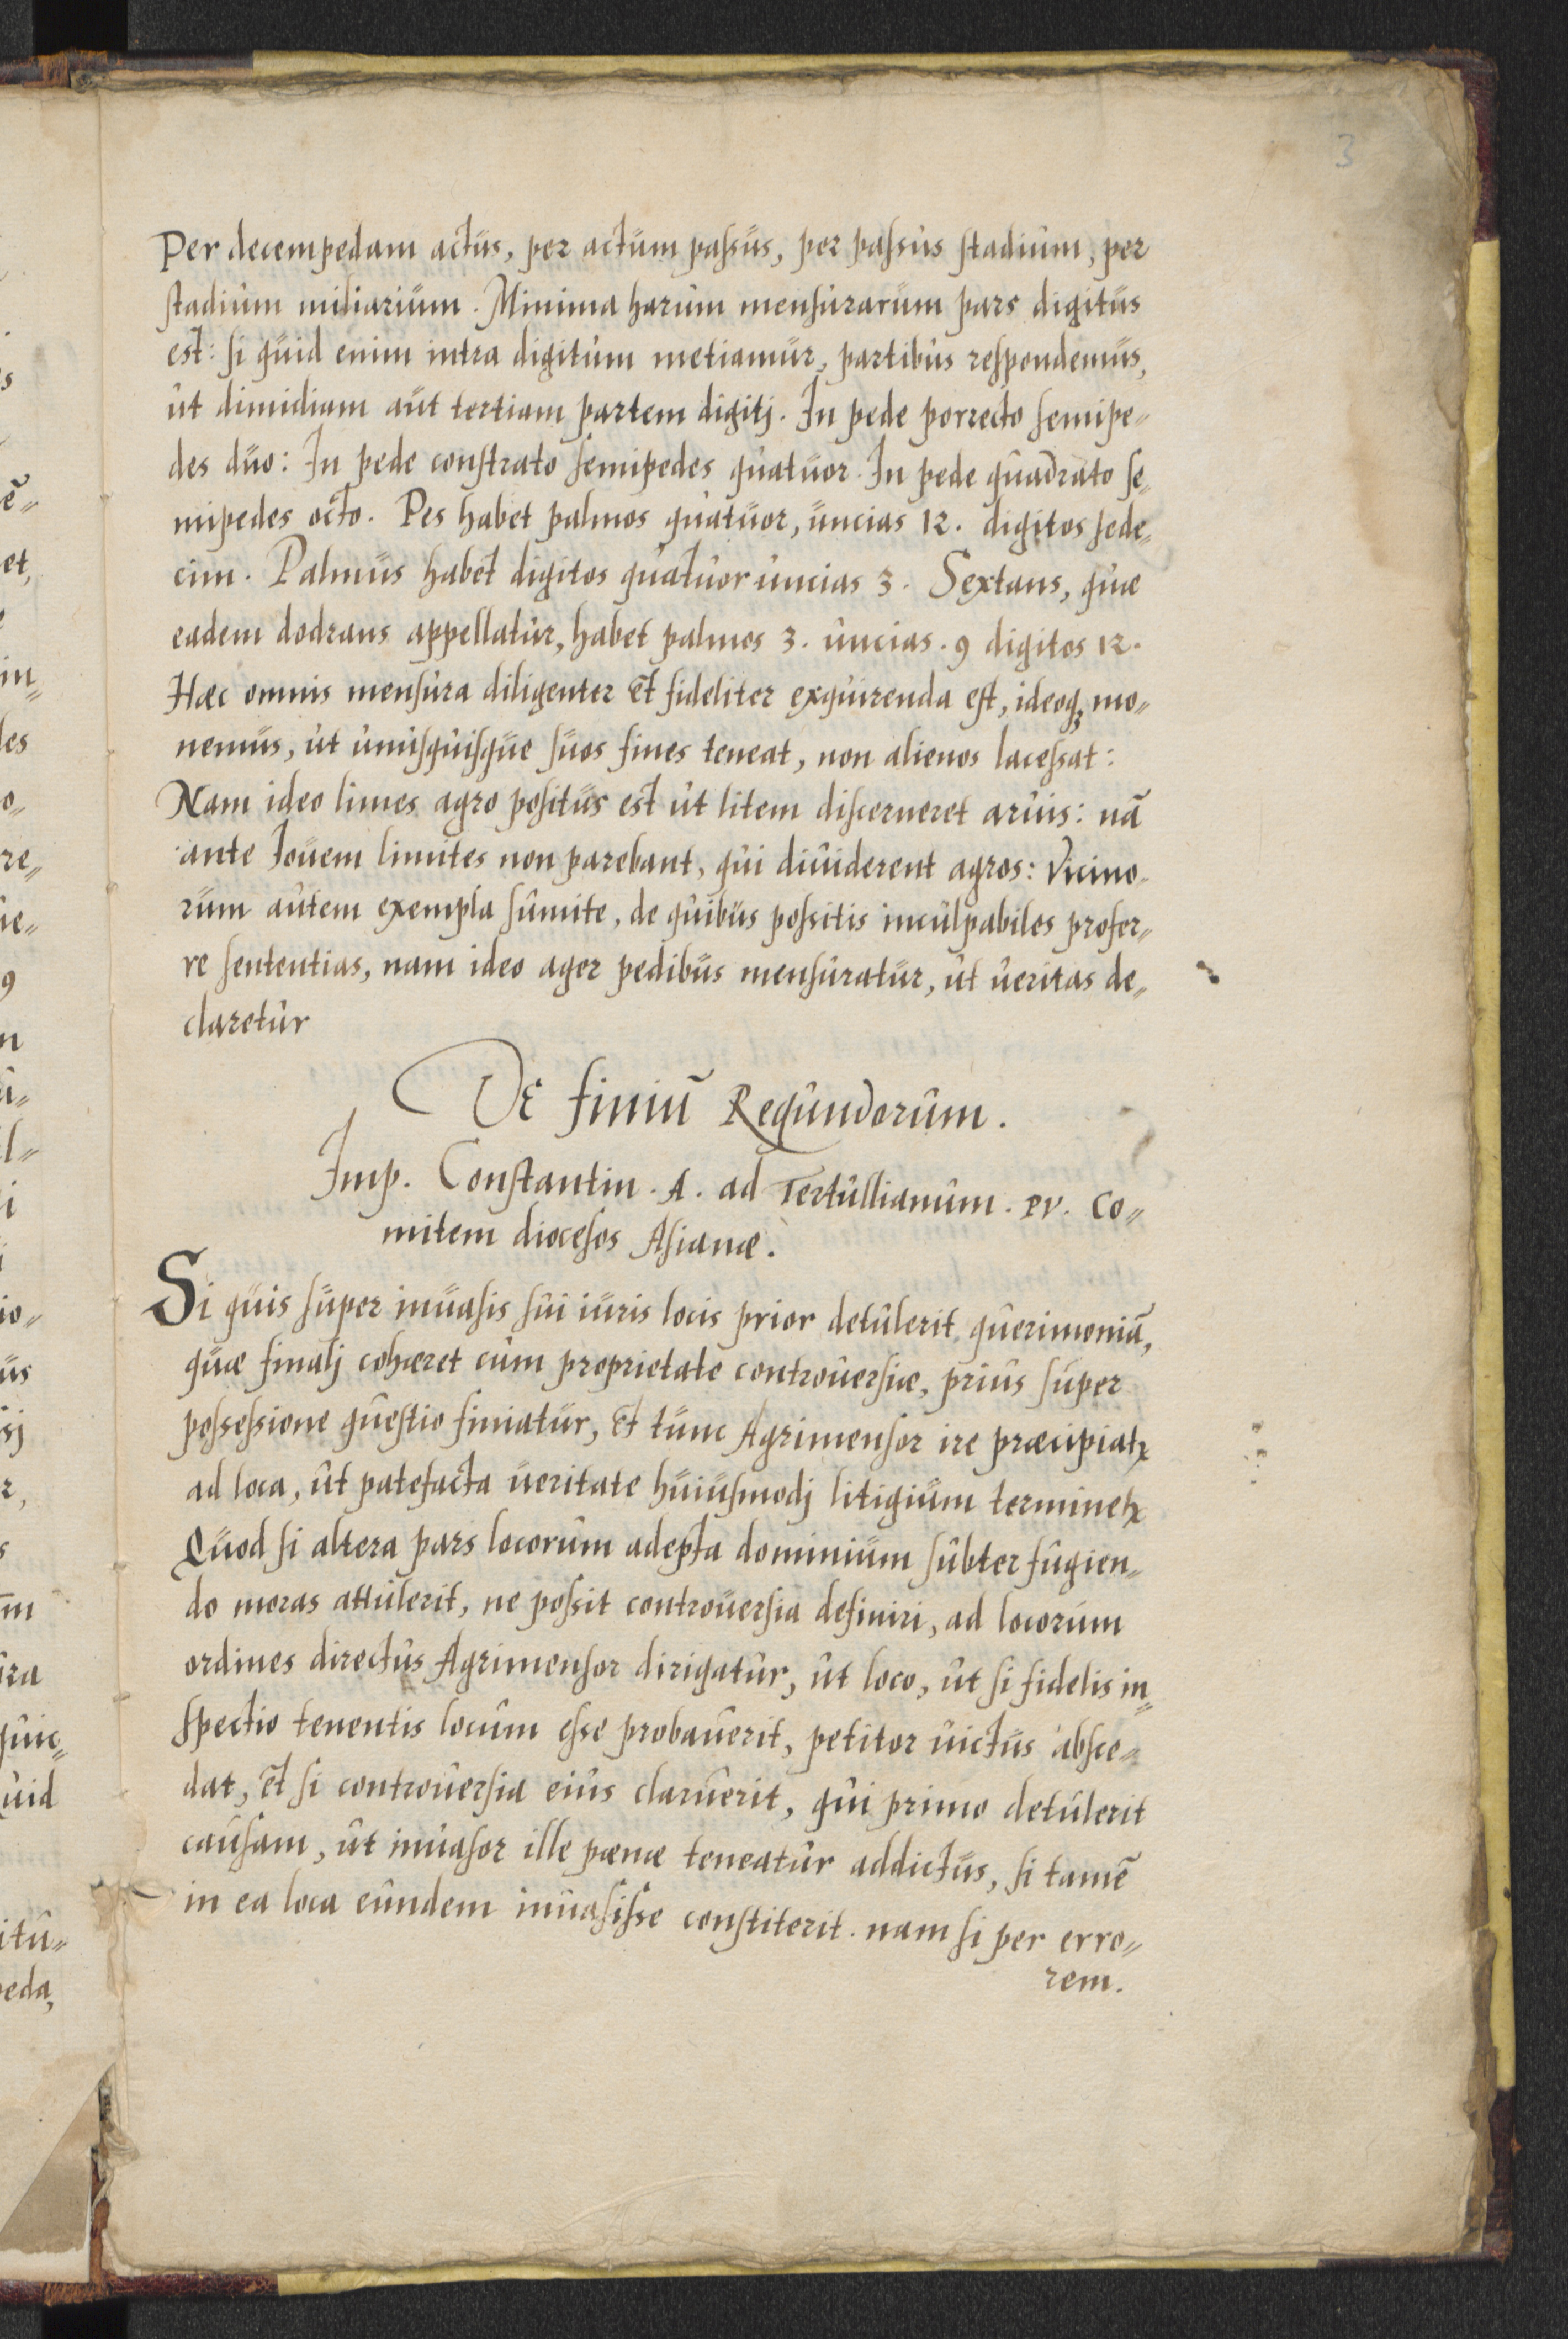 3
Per decempedam actus, per actum passus, per passus stadium, per
stadium miliarium. Minima harum mensurarum pars digitus
est: si quid enim intra digitum metiamur, partibus respondemus,
ut dimidiam aut tertiam partem digitj. In pede porrecto semipe=
des duo: In pede constrato semipedes quatuor. In pede quadrato se=
mipedes octo. Pes habet palmos quatuor, uncias 12. digitos sede=
cim. Palmus habet digitos quatuor uncias 3. Sextans, quæ
eadem dodrans appellatur, habet palmos 3. uncias. 9 digitos 12.
Hæc omnis mensura diligenter et fideliter exquirenda est, ideoq; mo=
nemus, ut unusquisque suos fines teneat, non alienos lacessat:
Nam ideo limes agro positus est ut litem discerneret aruis: nā
ante Iouem limites non parebant, qui diuiderent agros: Vicino-
rum autem exempla sumite, de quibus possitis inculpabiles profer=
re sententias, nam ideo ager pedibus mensuratur, ut ueritas de=
claretur
De finiū Regundorum.
Imp. Constantin. A. ad Tertullianum. PV. Co=
mitem diocesos Asianæ.
Si quis super inuasis sui iuris locis prior detulerit querimoniā,
quæ finalj cohæret cum proprietate controuersiæ, prius super
possessione questio finiatur, et tunc Agrimensor ire præcipiatꝝ
ad loca, ut patefacta ueritate huiusmodj litigium termineꝝ
Quod si altera pars locorum adepta dominium subter fugien=
do moras attulerit, ne possit controuersia definiri, ad locorum
ordines directus Agrimensor dirigatur, ut loco, ut si fidelis in=
spectio tenentis locum esse probauerit, petitor uictus absce=
dat, et si controuersia eius claruerit, qui primo detulerit
causam, ut inuasor ille pœnæ teneatur addictus, si tamē
in ea loca eundem inuasisse constiterit. nam si per erro=
rem.